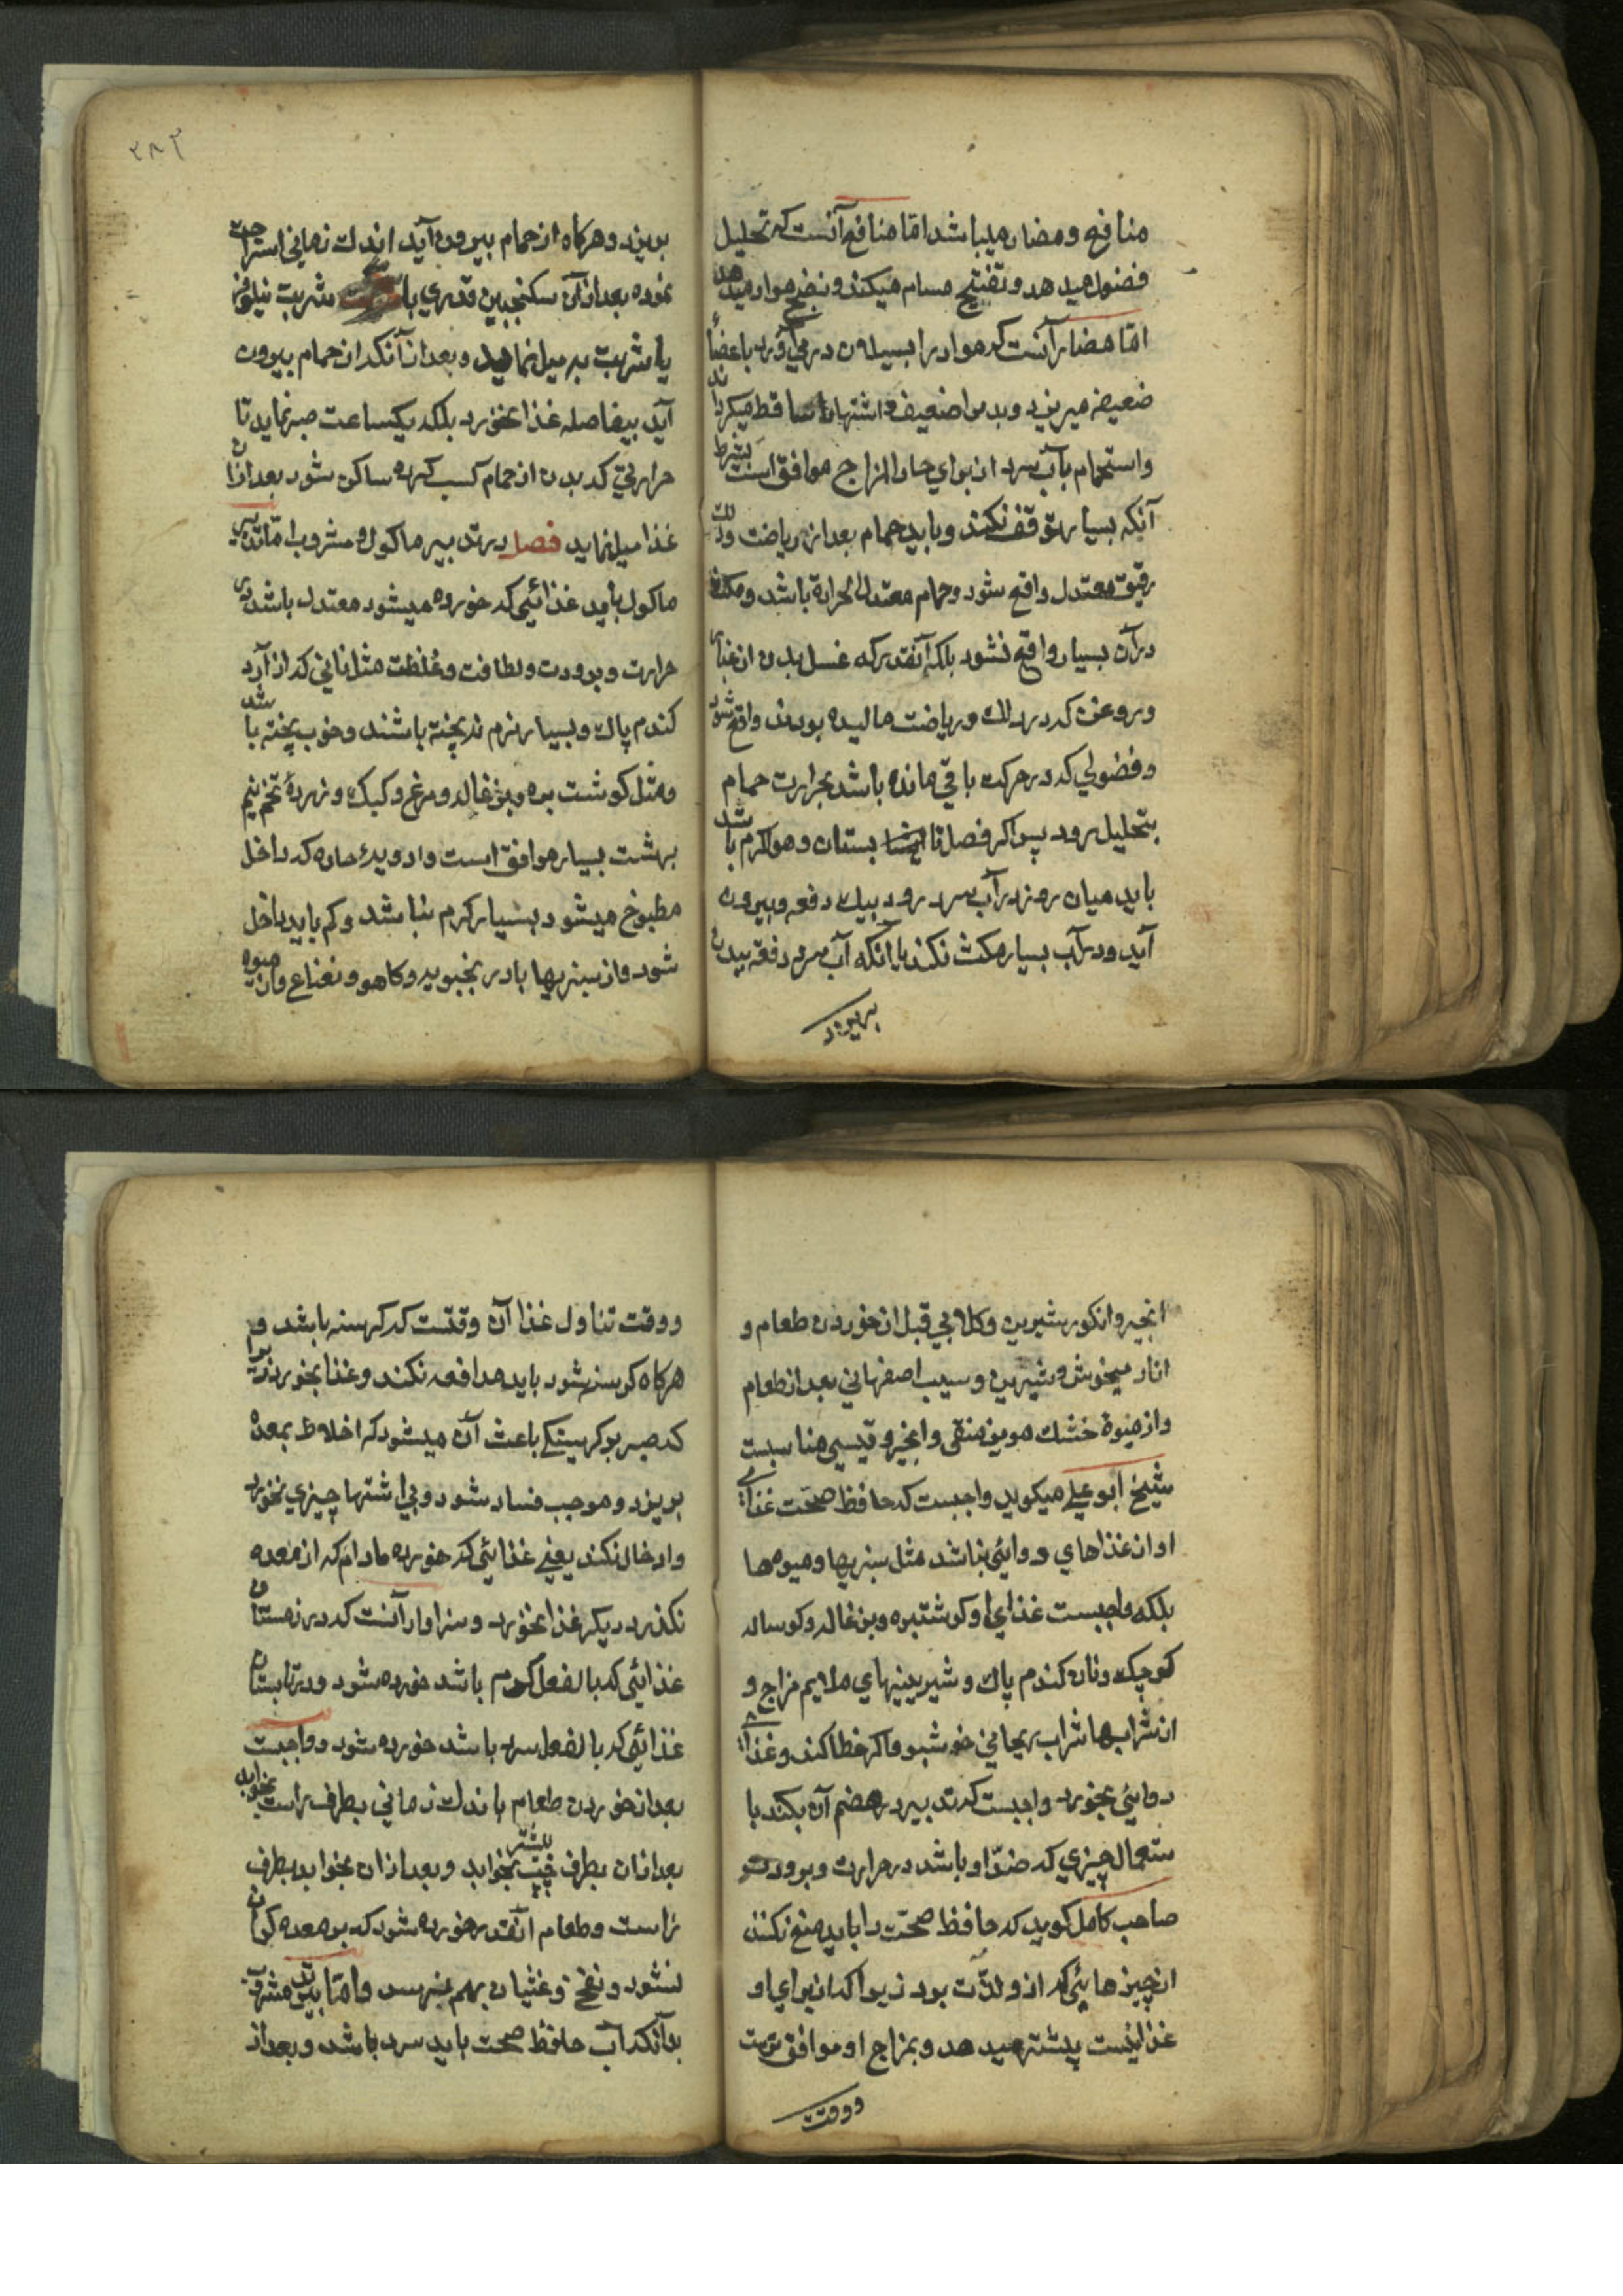 منافع و مضار میباشد اما منافع آنست که تحلیل
فضول میدهد و تفتیح مسام میکند و نضج مواد میدهد
اما مضار آنست که مواد را بسیلان در می آورد باعضاء
ضعیفه میریزد و بدن را ضعیف و اشتها را ساقط میکرداند
و استحمام بآب سرد از برای حار المزاج موافق است بشرط
آنکه بسیار توقف نکند و باید حمام بعد از ریاضت و دلک
رقیق معتدل واقع شود و حمام معتدل الحرارة باشد و مکث
در آن بسیار واقع نشود بلکه آنقدر که غسل بدن از غبار
و روغن که در دلک و ریاضت مالیده بودند واقع شود
و فضولی که در حرکت باقی مانده باشد بحرارت حمام
بتحلیل رود پس اکر فصل تابستان و هوا کرم باشد
باید میان روز در آب سرد رود بیک دفعه و بیرون
آید و در آب بسیار مکث نکند یا آنکه آب سرد دفعة ببدن
بریزد
۲۸۲
بریزد و هرکاه از حمام بیرون آید اندک زمانی استراحت
نموده بعد از آن سکنجبین قدری با شربت نیلوفر
یا شربت به میل نماید و بعد از آنکه از حمام بیرون
آید بیفاصله غذا نخورد بلکه یکساعت صبر نماید تا
حرارتی که بدن از حمام کسب کرده ساکن شود بعد از ان
غذا میل نماید فصل در تدبیر ماکول و مشروب اما تدبیر
ماکول باید غذائی که خورده میشود معتدل باشد در
حرارت و برودت و لطافت و غلظت مثل نانی که از آرد
کندم پاک و بسیار نرم نه پخته باشند و خوب پخته باشد
و مثل کوشت بره و بزغاله و مرغ و کبک و زردهٔ تخم نیم
برشت بسیار موافق است و ادویهٔ حاره که داخل
مطبوخ میشود بسیار کرم نباشد و کم باید داخل
شود و از سبزیها بادرنجبویه و کاهو و نعناع و از میوه
انجیر و انکور شیرین و کلابی قبل از خوردن طعام و
انار میخوش و شیرین و سیب اصفهانی بعد از طعام
و از میوهٔ خشک مویز منقی و انجیر و قیسی مناسبست
شیخ ابو علی میکوید واجبست که حافظ صحت غذای
او از غذاهای دوائی نباشد مثل سبزیها و میوه ها
بلکه واجبست غذای او کوشت بره و بزغاله و کوساله
کوچک و نان کندم پاک و شیرینیهای ملایم مزاج و
از شرابها شراب ریحانی خوشبو و اکر خطا کند و غذای
دوائی بخورد واجبست که تدبیر در هضم آن بکند با
ستعمال چیزی که ضد او باشد در حرارت و برودت
صاحب کامل کوید که حافظ صحت را باید منع نکنند
از چیزهایی که از و لذت برد زیرا که از برای او
غذائیست پیشتر میدهد و بمزاج او موافق ترست
و وقت
و وقت تناول غذا آن وقتست که کرسنه باشد و
هرکاه کرسنه شود باید مدافعه نکند و غذا بخورد زیرا
که صبر بر کرسنکی باعث آن میشود که اخلاط بمعده
بریزد و موجب فساد شود و بی اشتها چیزی نخورد
و ادخال نکند یعنی غذایی که خورده مادام که از معده
نکذرد دیکر غذا نخورد و سزاوار آنست که در زمستان
غذایی که بالفعل کرم باشد خورده شود و در تابستان
غذائی که بالفعل سرد باشد خورده شود و واجبست
بعد از خوردن طعام باندک زمانی بطرف راست بخوابد
بعد از آن بطرف چپ بیشتر بخوابد و بعد از آن بخوابد بطرف
راست و طعام آنقدر خورده شود که بر معده کران
نشود و نفخ و غثیان بهم نرسد و اما تدبیر مشروب
بدآنکه آب حافظ صحت باید سرد باشد و بعد از